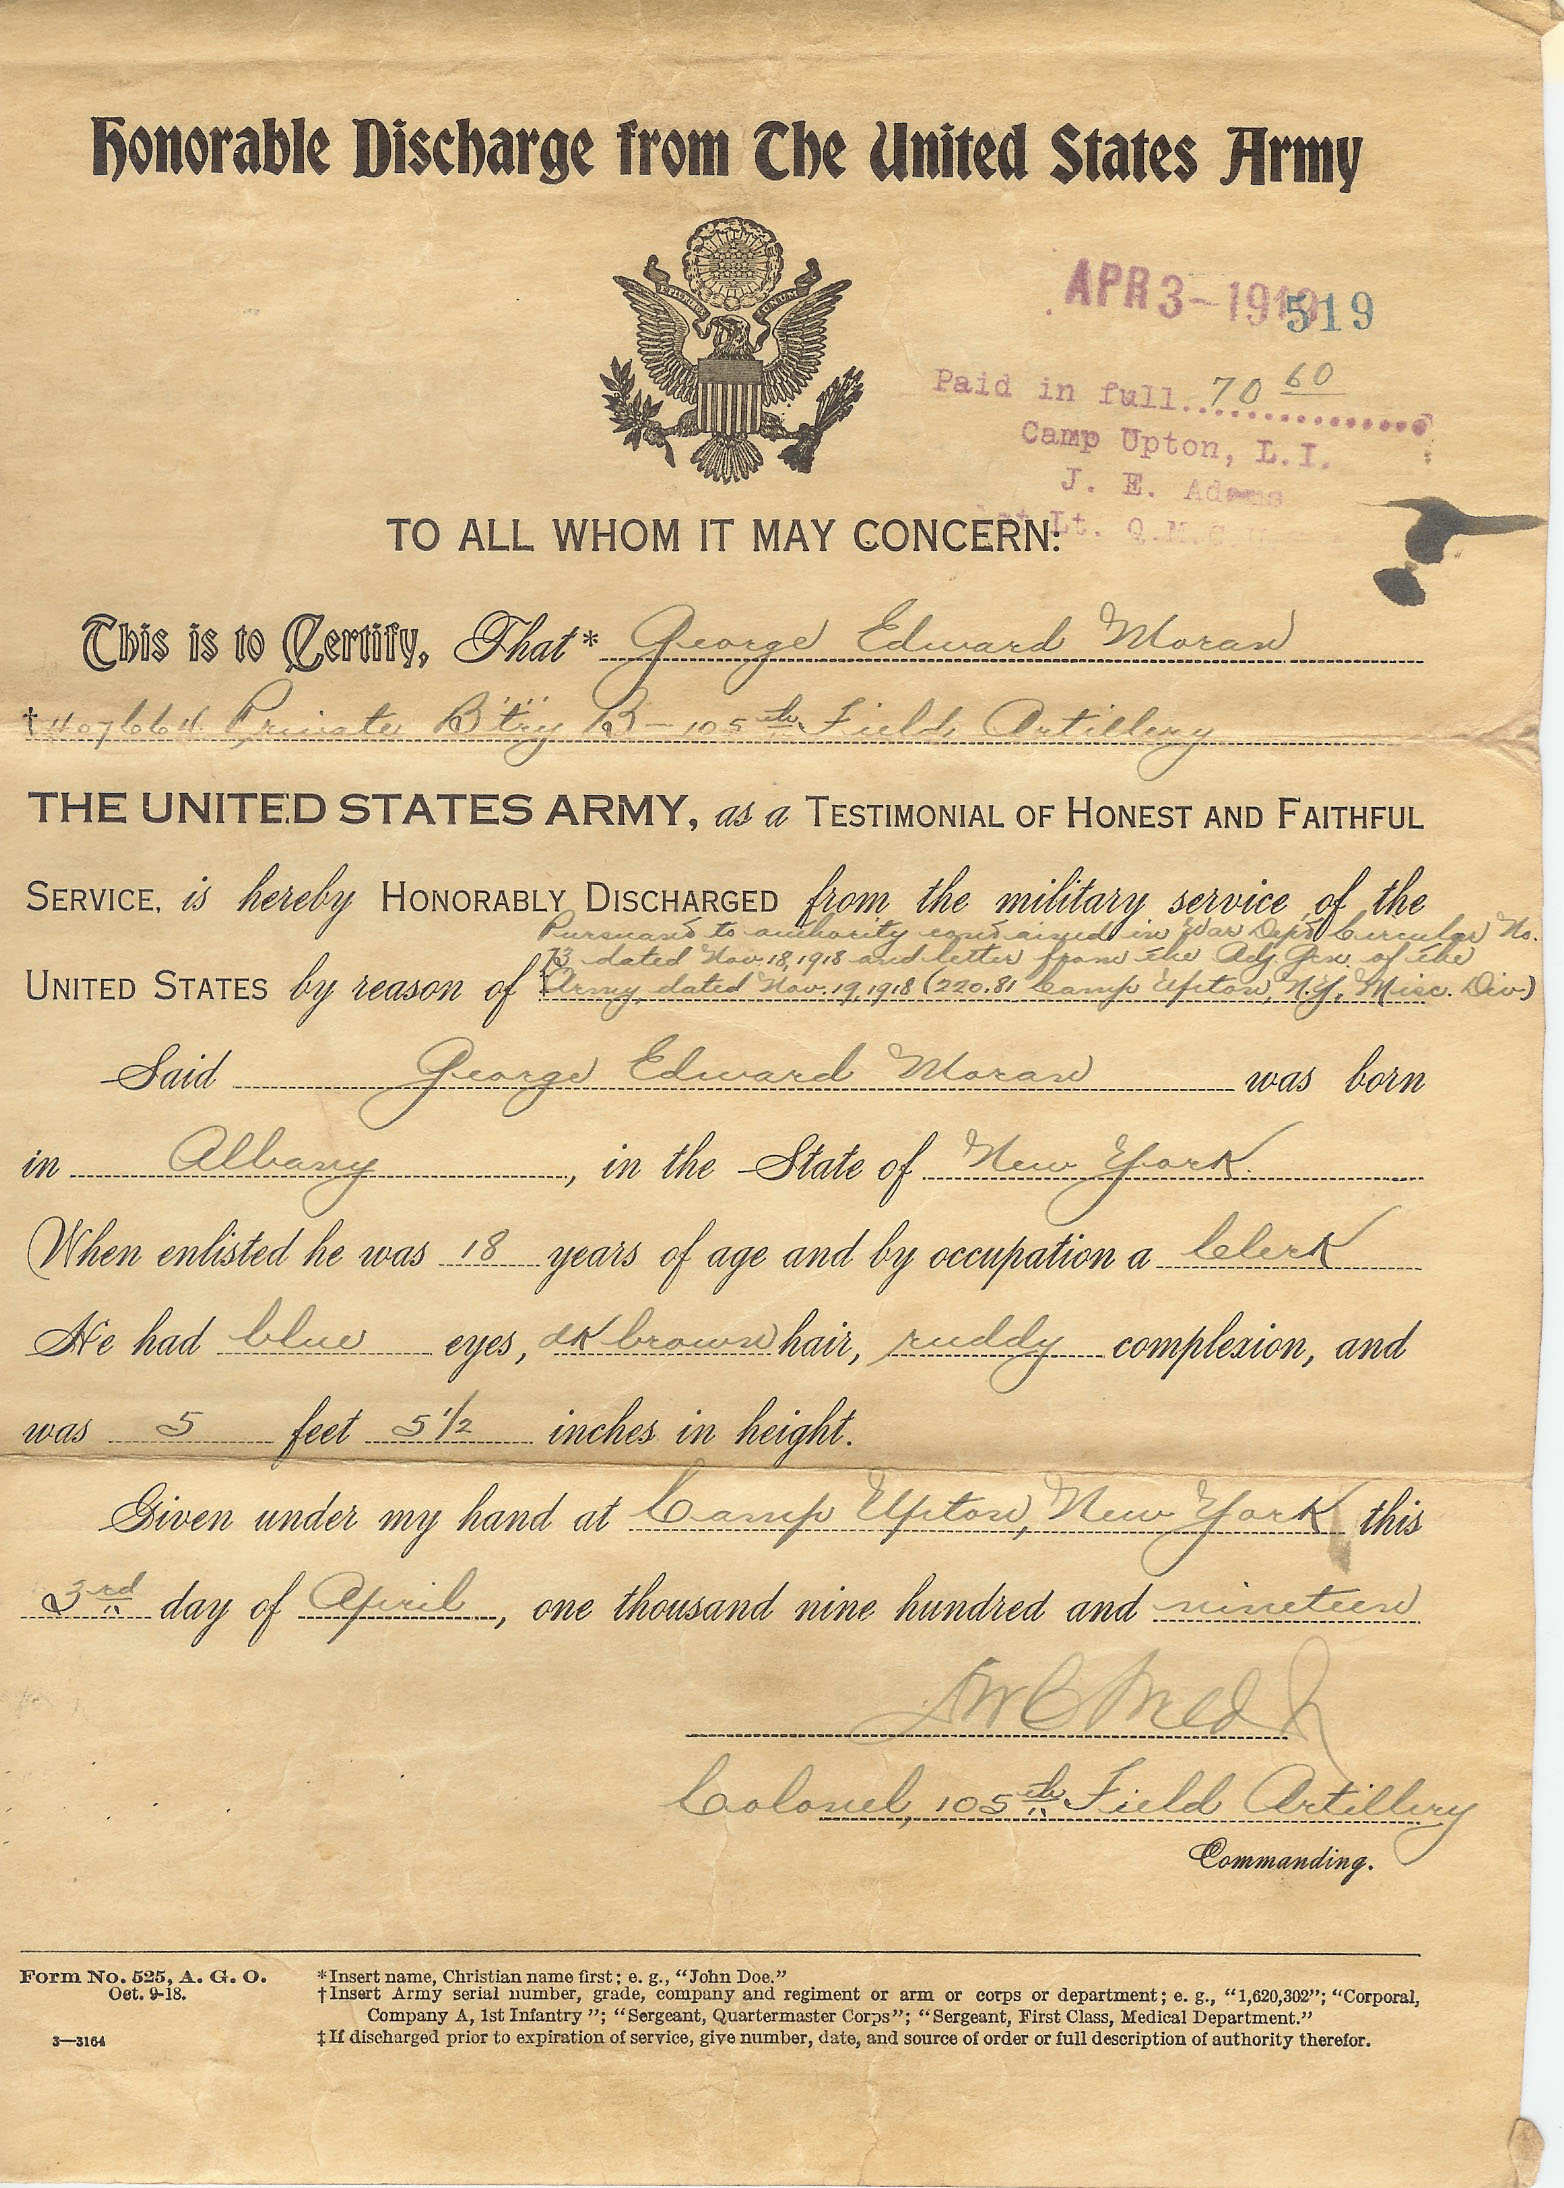 Honorable Discharge from The United States Army
E PLURIBUS UNUM
APR 3-1919
519
Paid in full. 70 60
Camp Upton, L.I.
J. E. Adams
1st Lt. Q.M.C.
TO ALL WHOM IT MAY CONCERN:
This is to Certify, That* George Edward Moran
†407664 Private B'try B - 105th Field Artillery
THE UNITED STATES ARMY, as a TESTIMONIAL OF HONEST AND FAITHFUL
SERVICE, is hereby HONORABLY DISCHARGED from the military service of the
Pursuant to authority contained in War Dept Circular No.
73 dated Nov. 18, 1918 and letter from the Adj Gen. of the
UNITED STATES by reason of ‡ Army, dated Nov. 19, 1918 (220.81 Camp Upton, N.Y., Misc. Div.)
Said George Edward Moran was born
in Albany, in the State of New York.
When enlisted he was 18 years of age and by occupation a Clerk
He had blue eyes, dk brown hair, ruddy complexion, and
was 5 feet 5 1/2 inches in height.
Given under my hand at Camp Upton, New York this
3rd day of April, one thousand nine hundred and nineteen
Colonel, 105th Field Artillery
Commanding.
Form No. 525, A. G. O.
Oct. 9-18.
3—3164
*Insert name, Christian name first; e. g., "John Doe."
†Insert Army serial number, grade, company and regiment or arm or corps or department; e. g., "1,620,302"; "Corporal,
Company A, 1st Infantry"; "Sergeant, Quartermaster Corps"; "Sergeant, First Class, Medical Department."
‡If discharged prior to expiration of service, give number, date, and source of order or full description of authority therefor.